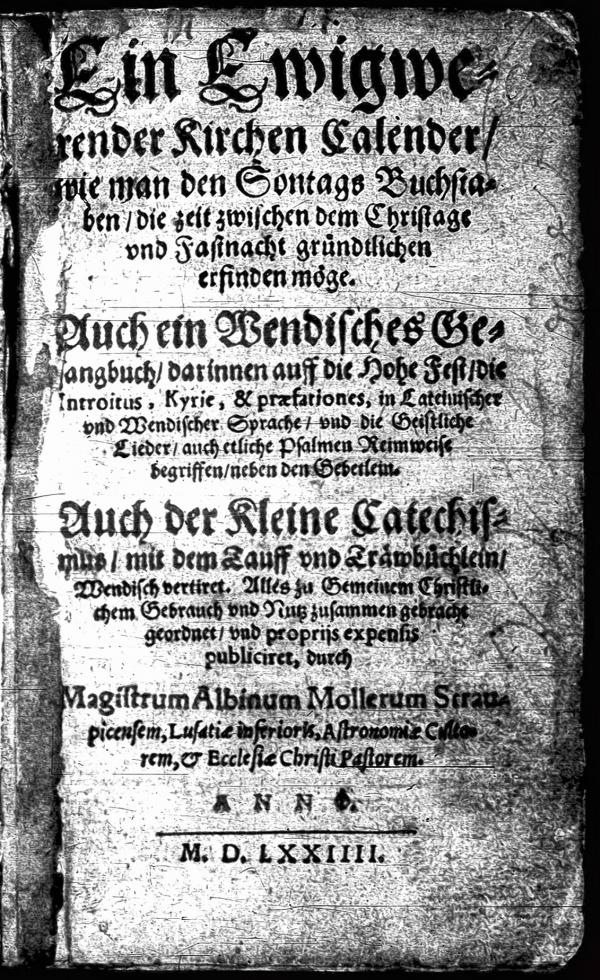 Ein Ewigwe⸗
render Kirchen Calender/
wie man den Sontags Buchsta⸗
ben / die zeit zwischen dem Christage
vnd Fastnacht gründtlichen
erfinden möge.
Auch ein Wendisches Ge⸗
sangbuch/ darinnen auff die Hohe Fest/die
Introitus, Kyrie, & præfationes, in Lateinischer
vnd Wendischer Sprache/ vnd die Geistliche
Lieder/ auch etliche Psalmen Reimweise
begriffen/neben den Gebetlein.
Auch der Kleine Catechis⸗
mus/ mit dem Tauff vnd Träwbüchlein/
Wendisch vertiret. Alles zu Gemeinem Christli⸗
chem Gebrauch vnd Nutz zusammen gebracht
geordnet/ vnd proprijs expensis
publiciret, durch
Magistrum Albinum Mollerum Strau⸗
picensem, Lusatiæ inferioris, Astronomiæ Culto⸗
rem, & Ecclesiæ Christi Pastorem.
ANNO.
M. D. LXXIIII.